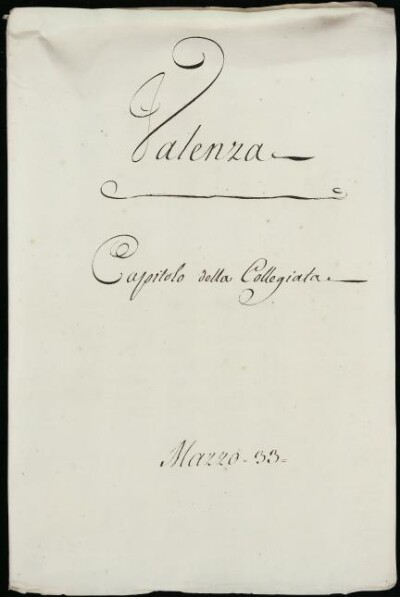 Valenza
Capitolo della Collegiata
Marzo - 33 =